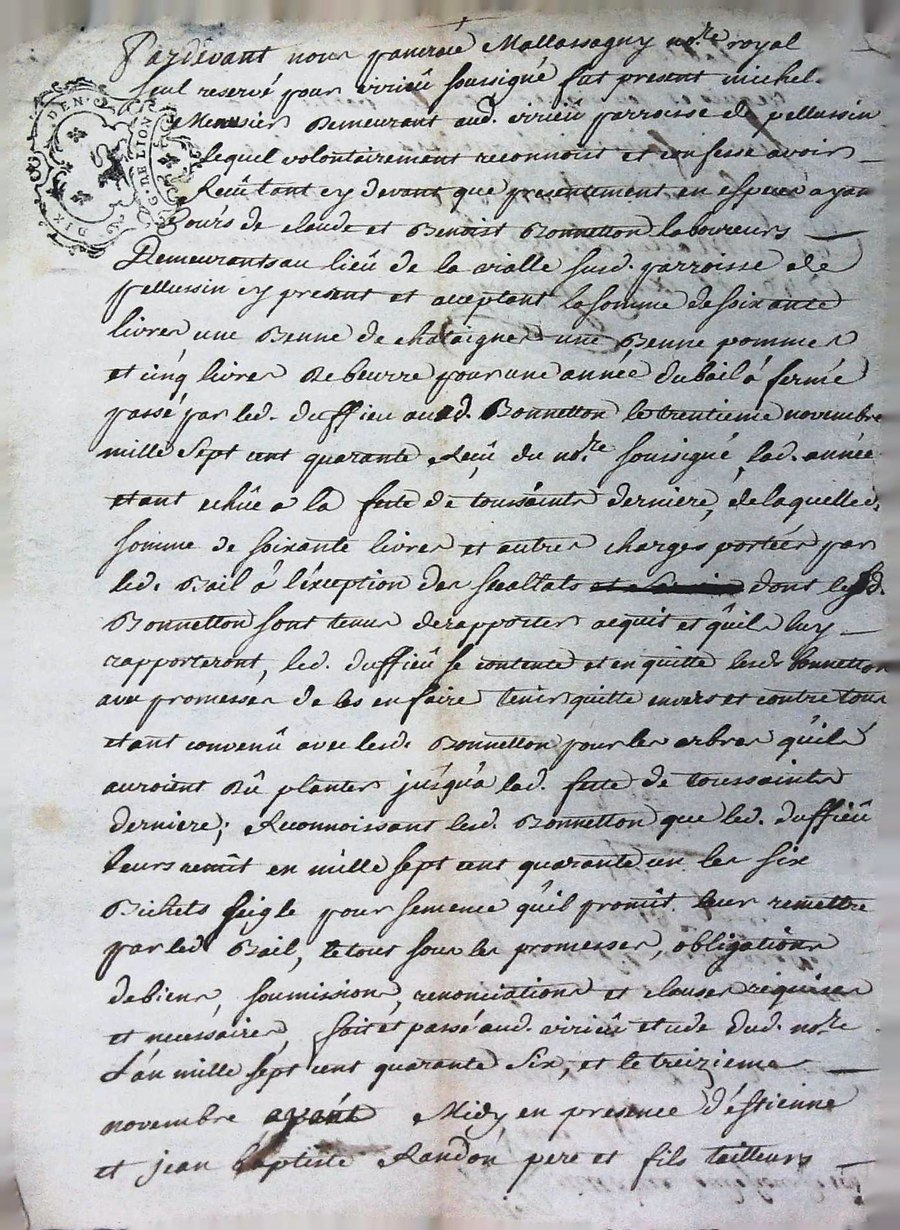 Pardevant nous pancrace Mallassagny no.re royal
seul reservé pour virieû soussigné fut present michel
Meusnier Demeurant aud. virieu parroisse de pellussin
lequel volontairement reconnoit et confesse avoir
Receû tant cy devant que presentement en especes ayan
Cours de claude et Benoist Bonnetton laboureurs
Demeurants au lieû de la vialle susd. parroisse de
pellussin cy present et acceptant la somme de soixante
livres une Benne de chataignes une Benne pommes
et cinq livres de beurre pour une année du bail á ferme
passé par led. duffieu auxd. Bonnetton le trentieme novembre
mille sept cent quarante Receû du no.re soussigné, lad. année
etant echûe a la fete de toussaints derniere, de laquelle
somme de soixante livres et autres charges portées par
led. Bail á l'éxception des dont lesd.
Bonnetton sont tenus de rapporter acquit et qu'ils luy
rapporteront, led. duffieû se contente et en quitte lesd. bonnetton
avec promesses de les en faire tenir quitte envers et contre tous
etant convenû avec lesd. Bonnetton pour les arbres qu'ils
auroient dû planter jusqu'a lad. fete de toussaints
derniere; Reconnoissant lesd. Bonnetton que led. duffieû
leurs remit en mille sept cent quarante un les six
Bichets seigle pour semence qu'il promit leur remettre
par led. Bail, le tous sous les promesses, obligations
de biens, soumissions, renonciations et clauses requises
et necessaires, fait et passé aud. virieû etude dud. no.re
L'an mille sept cent quarante six, et le treizieme
novembre avant Midy en presence d'éstienne
et jean baptiste Randon pere et fils tailleurs
DIX DEN.
G. DE LION